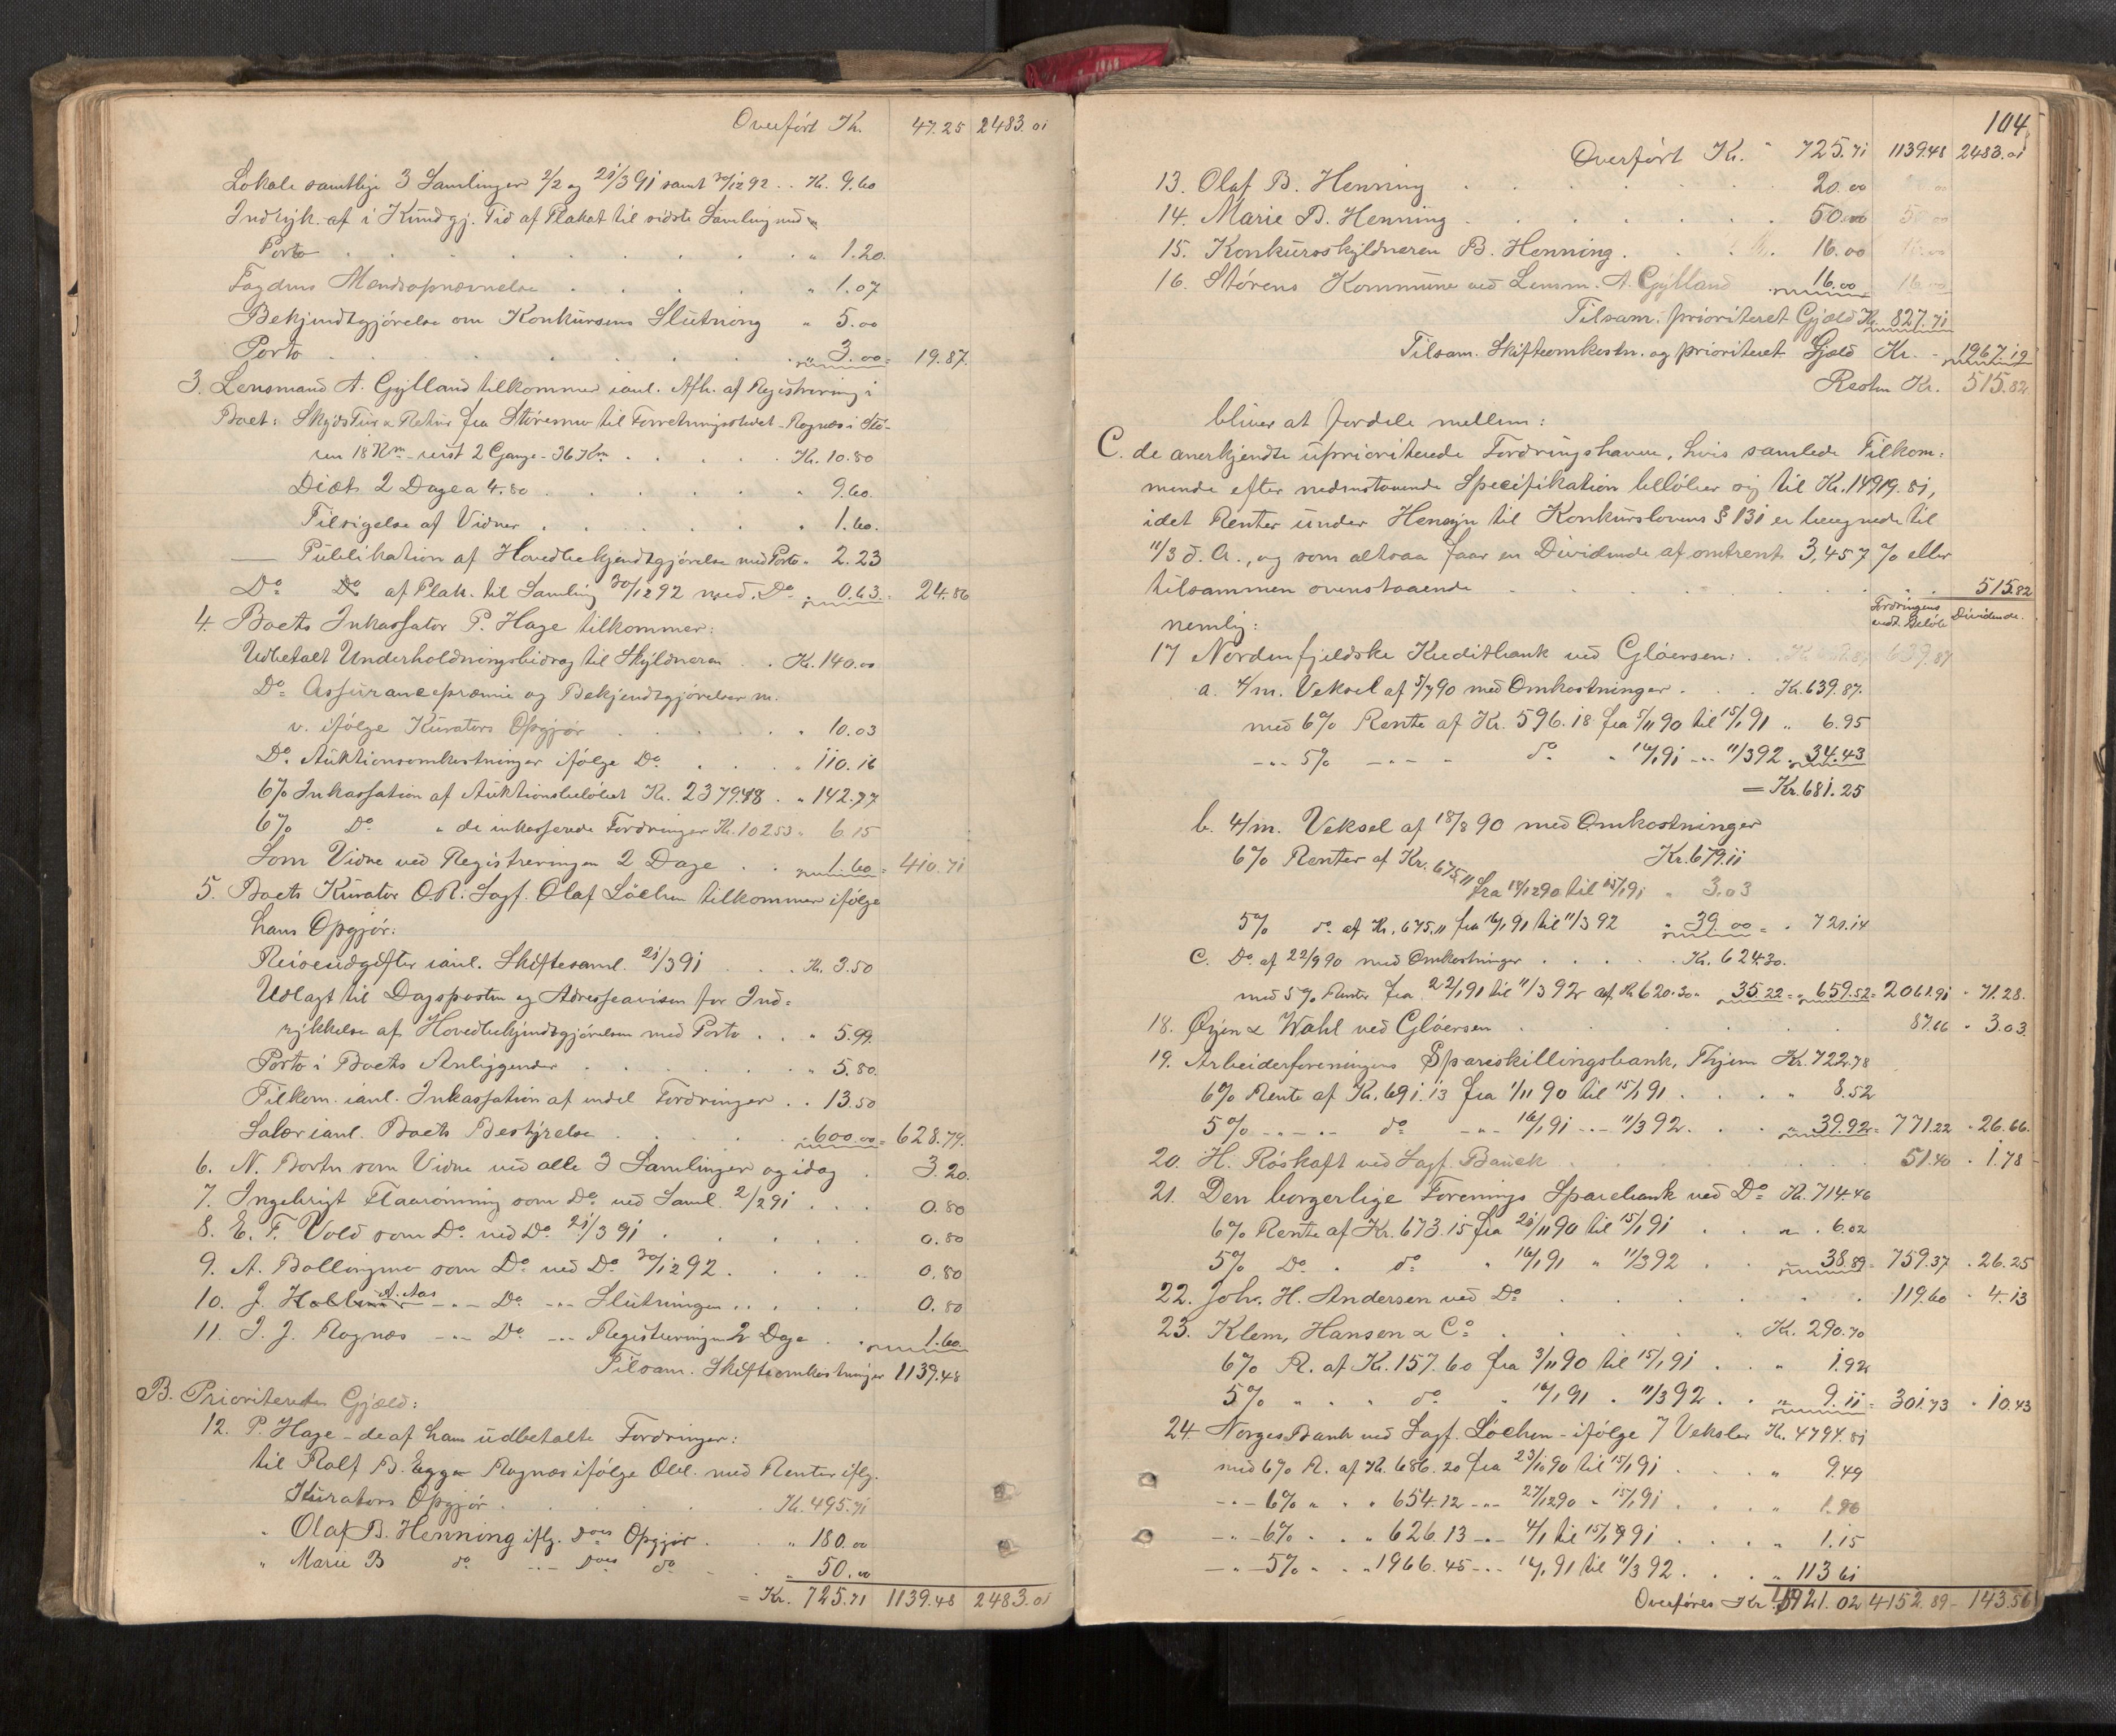 Overført Kr. 47.25 2483.01
Lokale samtlige 3 Samlinger 2/2 og 21/3 91 samt 30/12 92 . . Kr. 9.60
Indryk. af i Kundgj. Tid af Plakat til sidste Samling med
Porto . . . . " 1.20.
Fogdens Mendsopnævnelse . . . . " 1.07
Bekjendtgjørelse om Konkursens Slutning " 5.00
Porto . . . . " 3.00 = 19.87.
3. Lensmand A. Gylland tilkommer ianl. Afh. af Registrering i
Boet: Skyds Tur & Retur fra Støren til Forretningsstedet Rognes i Stø-
ren 18 Km - reist 2 Gange - 36 Km . . . . Kr. 10.80
Diæt 2 Dage a 4.80 . . . . " 9.60.
Tilsigelse af Vidner . . . . " 1.60.
— Publikation af Hovedbekjendtgjørelse med Porto " 2.23
Do Do af Plak. til Samling 30/12 92 med Do " 0.63 = 24.86
4. Boets Inkassator P. Hage tilkommer:
Udbetalt Underholdningsbidrag til Skyldneren . . Kr. 140.00
Do Assurancepræmie og Bekjendtgjørelser m.
v. ifølge Kurators Opgjør . . . . " 10.03
Do. Auktionsomkostninger ifølge Do. . . . " 110.16
6% Inkassation af Auktionsbeløbet Kr. 2379.48 . " 142.77
6% Do. " de inkasserede Fordringer Kr. 102.53 " 6.15
Som Vidne ved Registreringen 2 Dage . . " 1.60 = 410.71
5. Boets Kurator O.R. Sagf. Olaf Løchen tilkommer ifølge
hans Opgjør:
Reiseudgifter ianl. Skiftesaml. 21/3 91 . . . Kr. 3.50
Udlagt til Dagsposten og Adresseavisen for Ind-
rykkelse af Hovedbekjendtgjørelsen med Porto . . " 5.99.
Porto i Boets Anliggender . . . . " 5.80.
Tilkom. ianl. Inkassation af endel Fordringer . . 13.50
Salær ianl. Boets Bestyrelse . . . . 600.00 = 628.79.
6. N. Borten som Vidne ved alle 3 Samlinger og idag . 3.20.
7. Ingebrigt Flaarønning som Do ved Saml. 2/2 91 . . . 0.80
8. E. F. Vold som Do. ved Do. 21/3 91 . . . . 0.80
9. A. Bollingmo som Do. ved Do. 30/12 92 . . . . 0.80
10. J. A. Aas -..- Do -..- Slutningen . . . . 0.80
11. J. J. Rognes -..- Do -..- Registreringen 2 Dage . . 1.60.
Tilsam. Skifteomkostninger 1139.48
B. Prioriteret Gjæld:
12. P. Hage - de af ham udbetalte Fordringer:
til Rolf B. Egger Rognes ifølge Obl. med Renter iflg.
Kurators Opgjør . . . . Kr. 495.71
" Olaf B. Henning iflg. does Opgjør . . " 180.00
" Marie B do -..- does do . . " 50.00
= Kr. 725.71 1139.48 2483.01
104.
Overført Kr. " 725.71 1139.48 2483.01
13. Olaf B. Henning . . . . 20.00
14. Marie B. Henning . . . . 50.00
15. Konkursskyldneren B. Henning . . . 16.00
16. Størens Kommune ved Lensm. A. Gylland 16.00
Tilsam. prioriteret Gjæld Kr. 827.71
Tilsam. Skifteomkostn. og prioriteret Gjæld Kr. - 1967.19
Resten Kr. 515.82
bliver at fordele mellem:
C. de anerkjendte uprioriterede Fordringshavere, hvis samlede Tilkom-
mende efter nedenstaaende Specifikation beløber sig til Kr. 14919.81,
idet Renter under Hensyn til Konkurslovens § 131 er beregnede til
11/3 d. A., og som altsaa faar en Dividende af omtrent 3,457 % eller
tilsammen ovenstaaende . . . . 515.82
nemlig: Fordringens endl. Beløb Dividende.
17 Nordenfjeldske Kreditbank ved Gløersen: .
a. 4/m. Veksel af 5/7 90 med Omkostninger . . . Kr. 639.87.
med 6% Rente af Kr. 596.18 fra 5/11 90 til 15/1 91 " 6.95
-..- 5% -..- - do " 16/1 91 -..- 11/3 92 . 34.43
= Kr. 681.25
b. 4/m. Veksel af 18/8 90 med Omkostninger
6% Renter af Kr. 675.11 Kr. 679.11
fra 18/12 90 til 15/1 91 " 3.03
5% do af Kr. 675.11 fra 16/1 91 til 11/3 92 " 39.00 = . 721.14
C. Do. af 22/9 90 med Omkostninger . . . . Kr. 624.30.
med 5% Renter fra 22/1 91 til 11/3 92 af Kr 620.30 " 35.22 = " 659.52 = 2061.91 - 71.28.
18. Øyen & Wahl ved Gløersen . . . . 87.66 . 3.03.
19. Arbeiderforeningens Spareskillingsbank, Thjem Kr. 722.78
6% Rente af Kr. 691.13 fra 1/11 90 til 15/1 91 . . . " 8.52
5% -..-..- do -..- 16/1 91 -..- 11/3 92 . . " 39.92 = 771.22 . 26.66.
20. H. Røskaft ved Sagf. Bauck . . . . 51.40 . 1.78
21. Den borgerlige Forenings Sparebank ved Do Kr. 714.46
6% Rente af Kr. 673.15 fra 21/11 90 til 15/1 91 . . " . 6.02
5% Do . do " 16/1 91 " 11/3 92 . . " 38.89 = 759.37 . 26.25
22. Joh. H. Andersen ved Do . . . . 119.60 . 4.13
23. Klem, Hansen & Co . . . . Kr. 290.70
6% R. af Kr. 157.60 fra 3/11 90 til 15/1 91 . . " 1.92
5% " " . do . 16/1 91 . 11/3 92 . . " 9.11 = 301.73 . 10.43
24. Norges Bank ved Sagf. Løchen - ifølge 7 Veksler Kr. 4794.81
med 6% R. af Kr. 686.20 fra 23/10 90 til 15/1 91 . . . " 9.49
-..- 6% " . . 654.12 -..- 27/12 90 " 15/1 91 . . . " 1.96
-..- 6% . . " 626.13 -..- 4/1 til 15/1 91 . . . . " 1.15
-..- 5% " . . 1966.45 -..- 16/1 91 til 11/3 92 . . . " 113.61
Overføres Kr. 4921.02 4152.89 - 143.56